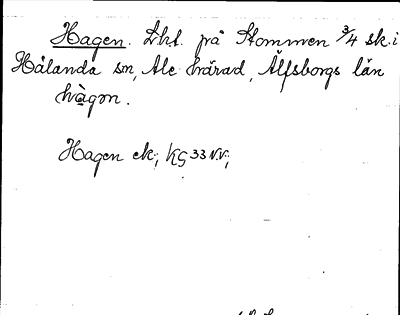 Hagen. Lht. på Stommen 3/4 sk. i
Hålanda sn, Ale härad, Älfsborgs län
hàgɷn.
Hagen ek; KG 33 N.V;